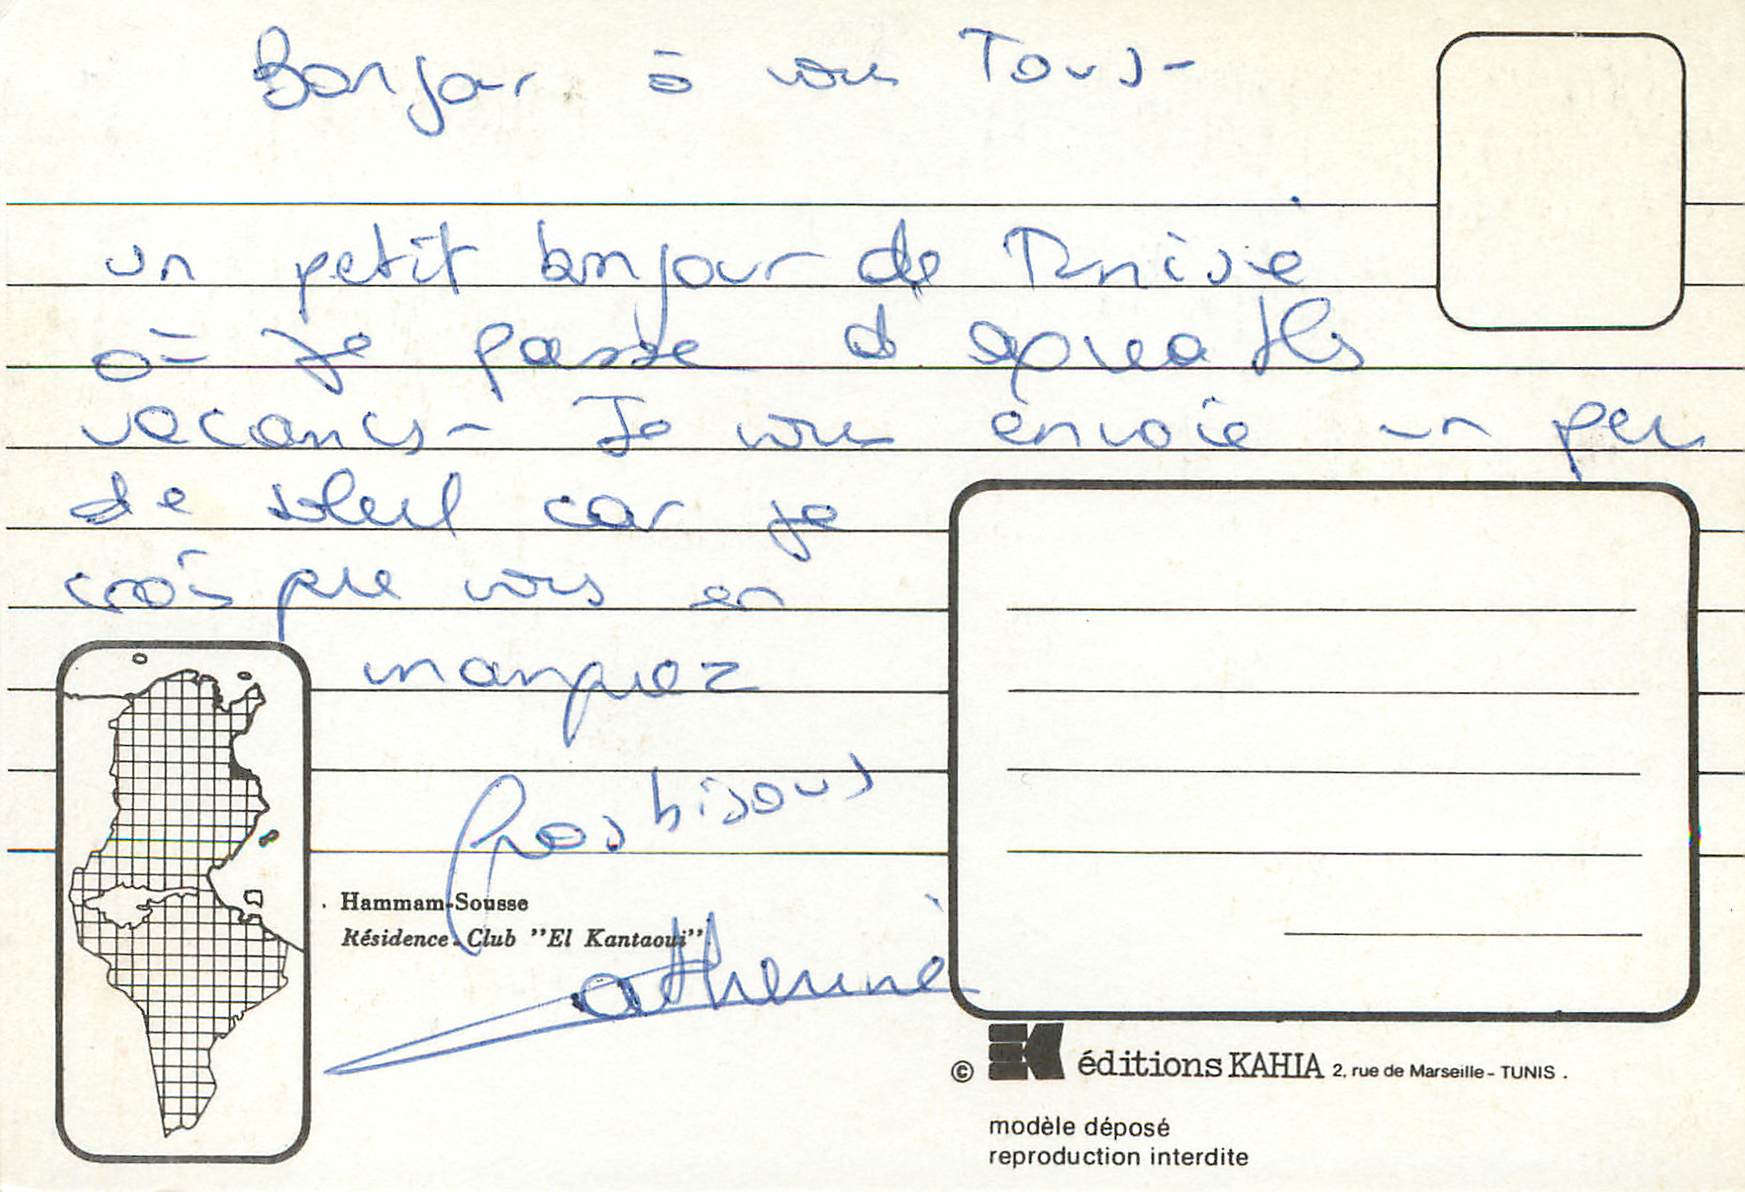 Bonjour à vous Tous -
un petit bonjour de Tunisie
où je passe d'agréables
vacances - Je vous envoie un peu
de soleil car je
crois que vous en
manquez
Gros bisous
Catherine
Hammam-Sousse
Résidence-Club "El Kantaoui".
© éditions KAHIA 2, rue de Marseille - TUNIS .
modèle déposé
reproduction interdite